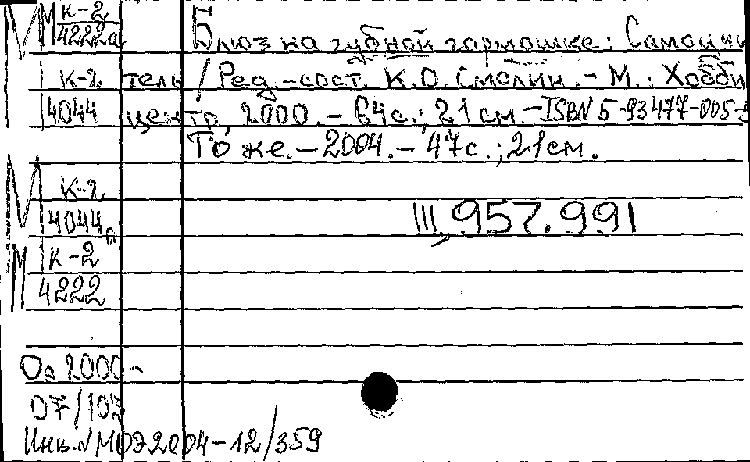 М К-2
4222а
Блюз на губной гармошке: Самоучи
К-2 тель / Ред.-сост. К.О. Смолин. - М.: Хобби
4044 центр, 2000. - 64с.; 21см. - ISBN 5-93477-005-
То же. - 2004. - 47с.; 21см.
М К-2
4044а
III, 957.991
М К-2
4222
Оя 2000 -
07/103
Инв.№ МОЭ2004-12/359